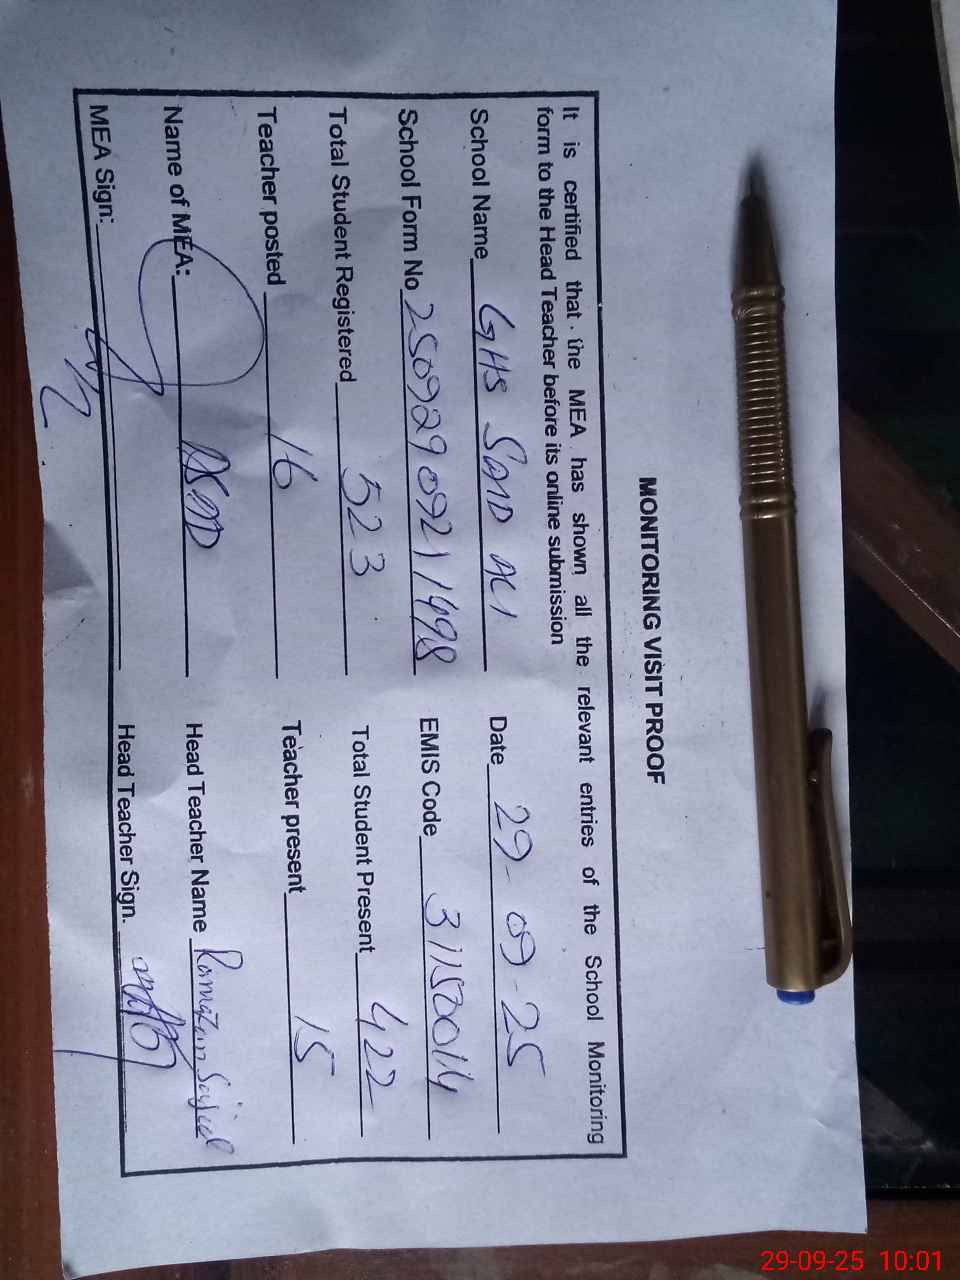 MONITORING VISIT PROOF
It is certified that the MEA has shown all the relevant entries of the School Monitoring
form to the Head Teacher before its online submission
School Name GHS SAID ALI Date 29-09-25
School Form No 25092909211498 EMIS Code 31150014
Total Student Registered 523 Total Student Present 422
Teacher posted 16 Teacher present 15
Name of MEA: ASAD Head Teacher Name Ramazan Sajid
MEA Sign: Head Teacher Sign.
29-09-25 10:01